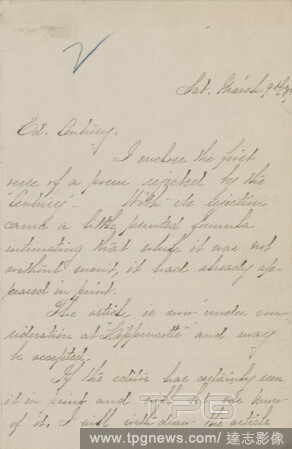 Sat. March 9th,
Ed. Century.
I enclose the first
verse of a poem rejected by the
"Century". With its rejection
came a little printed formula
intimating that while it was not
without merit, it had already ap-
peared in print.
The article is now under con-
sideration at "Lippencotts" and may
be accepted.
If the editor has certainly seen
it in print and will let me know
of it, I will with draw the article
TPG
www.tpgnews.com/ 達志影像